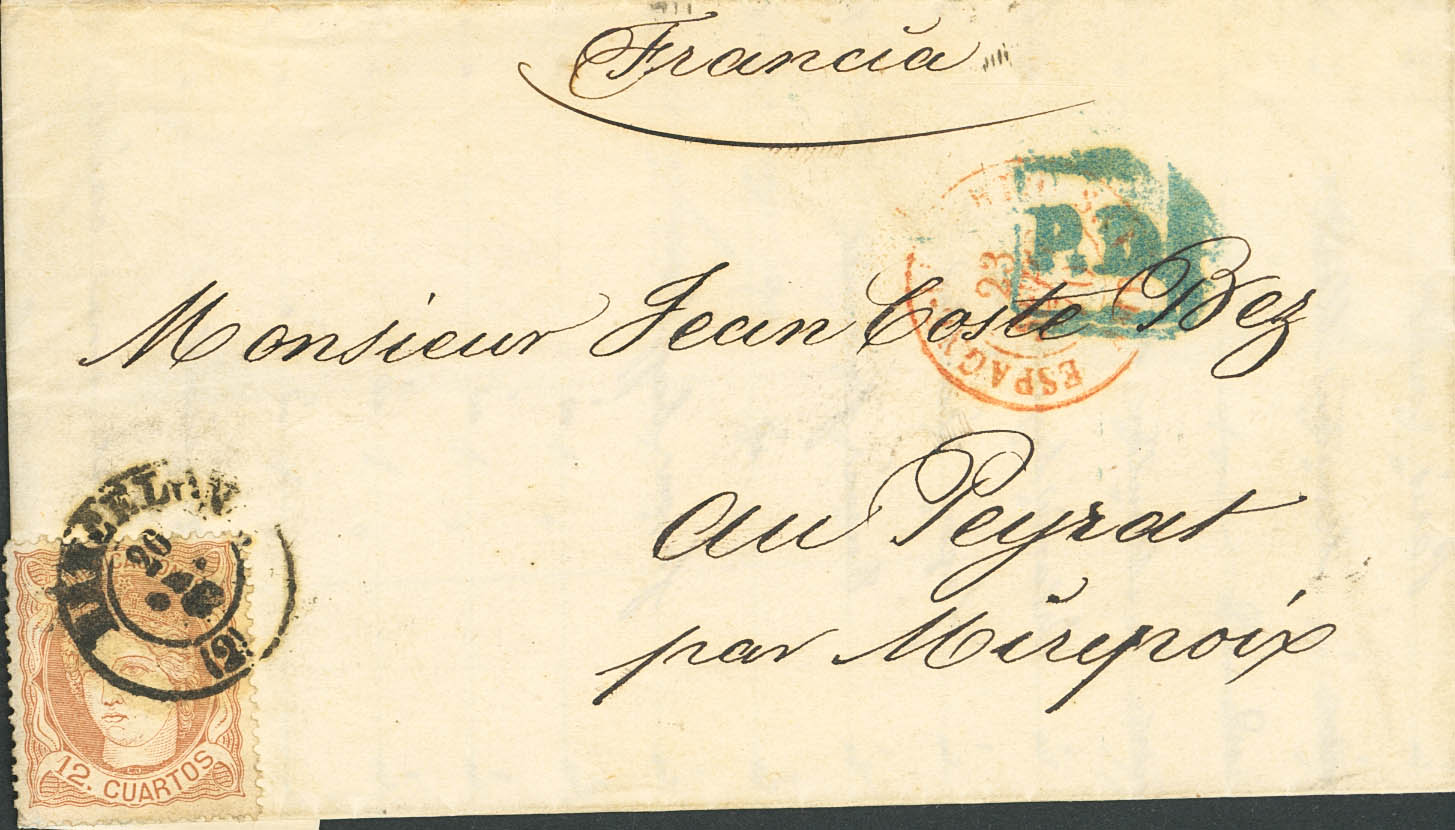 Francia
P.D.
23
ESPAGNE
Monsieur Jean Coste Bez
au Peyrat
par Mirepoix
20
(2)
12. CUARTOS